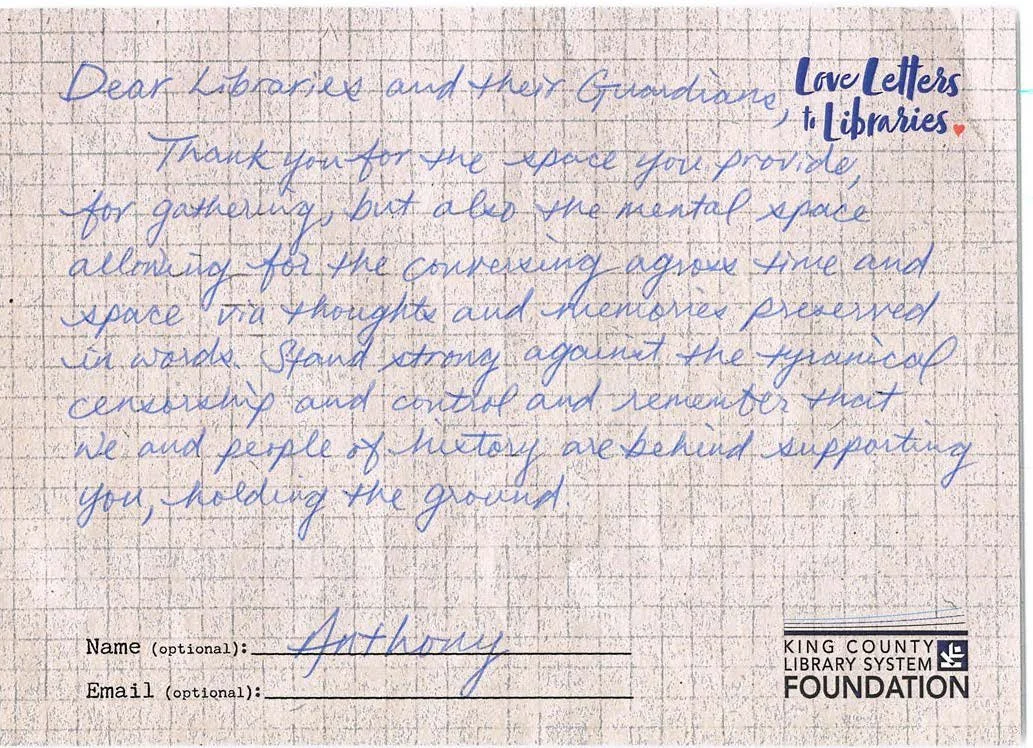 Dear Libraries and their Guardians,
Love Letters
to Libraries.
Thank you for the space you provide,
for gathering, but also the mental space
allowing for the conversing agross time and
space via thoughts and memories preserved
in words. Stand strong against the tyranical
censorship and control and remember that
we and people of history are behind supporting
you, holding the ground.
Name (optional): Anthony
Email (optional):
KING COUNTY
LIBRARY SYSTEM
FOUNDATION